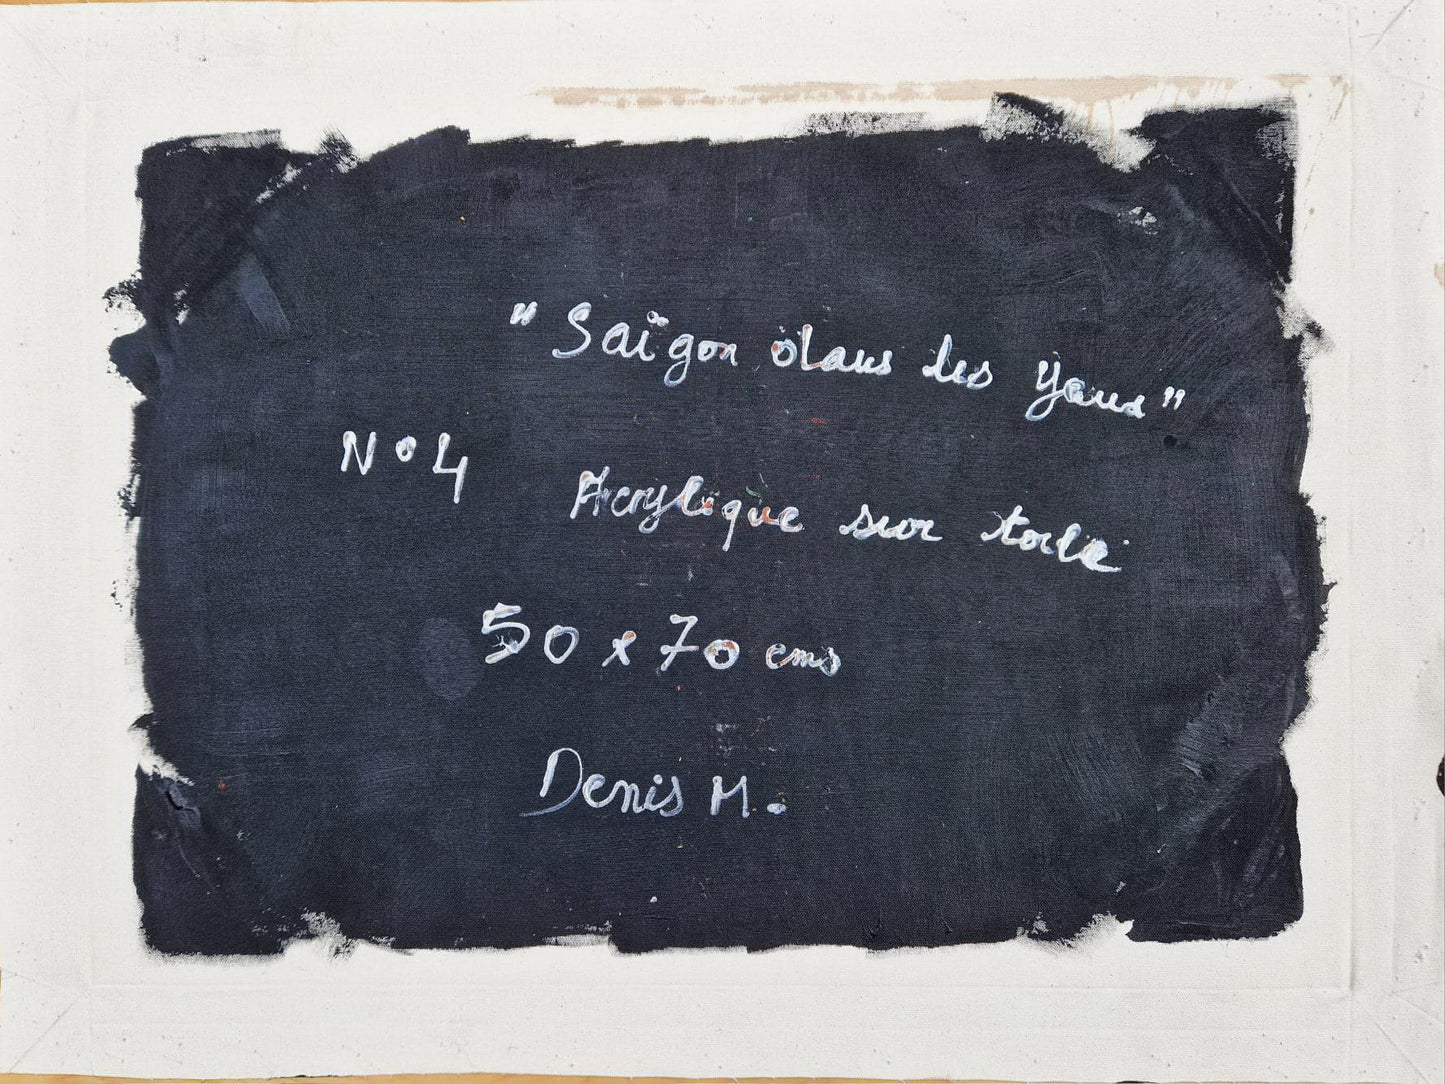 "Saïgon dans les Yeux"
N°4 Acrylique sur toile
50 x 70 cms
Denis M.